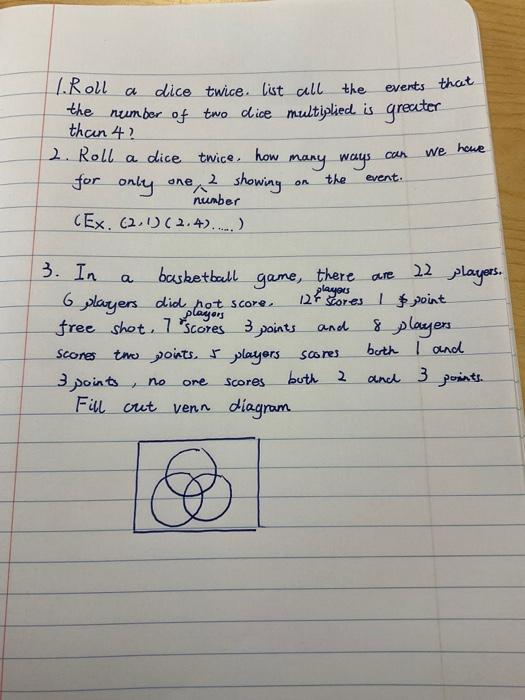 1. Roll a dice twice. list all the events that
the number of two dice multiplied is greater
than 4?
2. Roll a dice twice. how many ways can we have
for only one 2 showing on the event.
number
(Ex. (2,1) (2,4).....)
3. In a basketball game, there are 22 players.
players
6 players did not score. 12 scores 1 point
players
free shot, 7 scores 3 points and 8 players
scores two points. 5 players scores both 1 and
3 points, no one scores both 2 and 3 points.
Fill out venn diagram